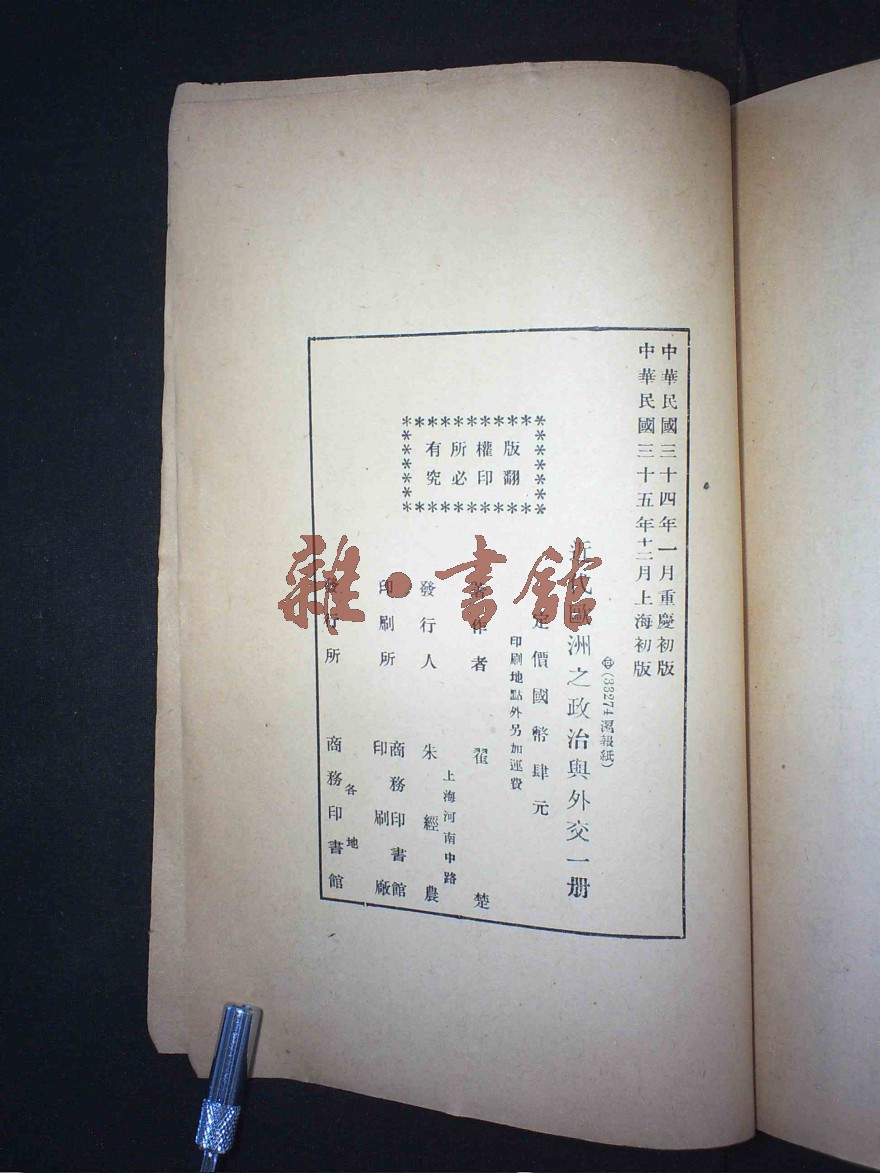 中華民國三十四年一月重慶初版
中華民國三十五年十二月上海初版
㊥(33274滬報紙)
近代歐洲之政治與外交一册
定價國幣肆元
印刷地點外另加運費
版權所有
翻印必究
著作者 翟楚
發行人 朱經農
上海河南中路
印刷所 商務印書館印刷廠
發行所 商務印書館
各地
雜·書館